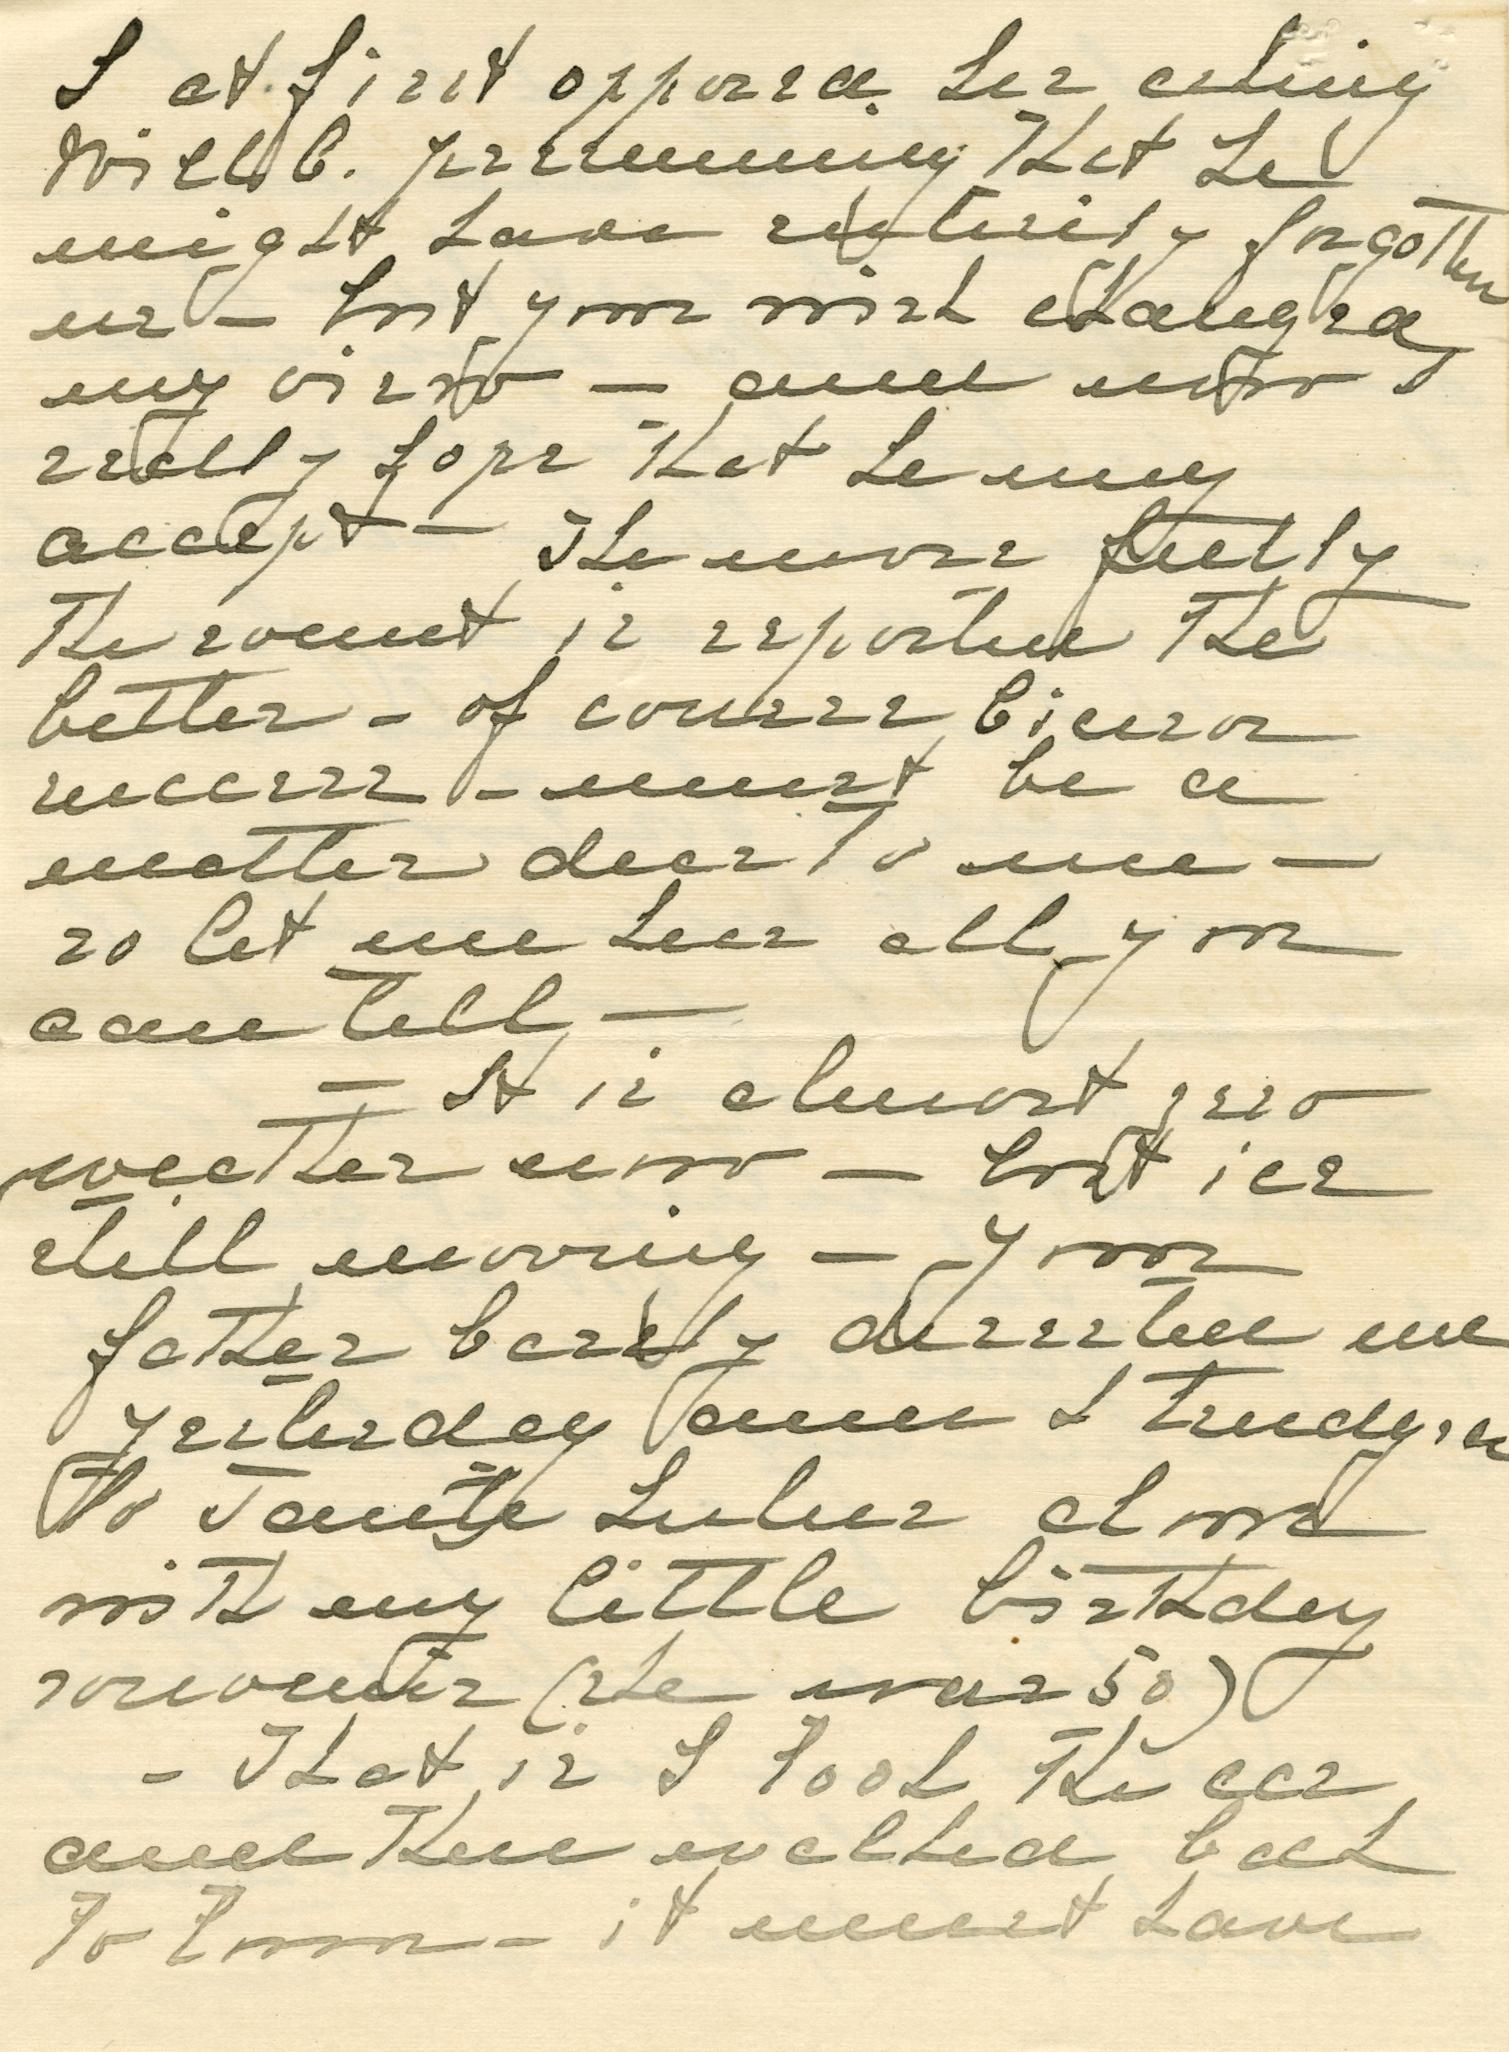 I at first opposed her asking
Will B. presuming that he
might have entirely forgotten
us – but your wish changed
my views – and now I
really hope that he may
accept – The more fully
the event is reported the
better – of course
success – must be a
matter dear to me –
so let me hear all you
can tell –
– It is almost zero
weather now – but ice
still moving – Your
father basely deserted me
yesterday and I trudged
to Tante alone
with my little birthday
souvenir (she was 50)
– That is I took the car
and then walked back
to town – it must have